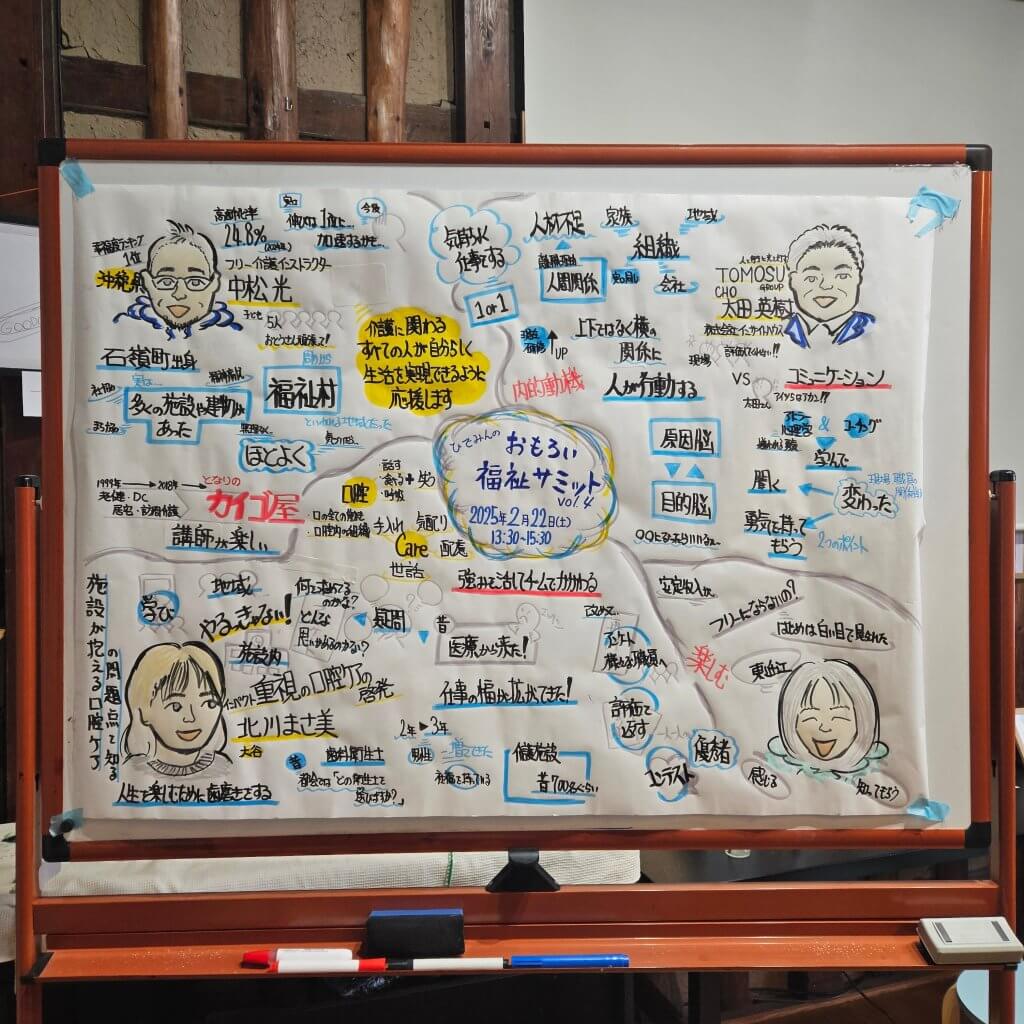 ひでみんの
おもろい
福祉サミット
vol.4
2025年2月22日(土)
13:30~15:30
幸福度ランキング
1位
沖縄県
高齢化率
24.8%
実は
今後
加速するが…
フリー介護インストラクター
中松 光
子ども
5人
石嶺町出身
実は…
多くの施設や建物が
あった
福祉村
ほどよく
1999年
2018年
老健・DC
居宅・訪問介護
となりの
カイゴ屋
講師が楽しい
介護に関わる
すべての人が自分らしく
生活を実現できるように
応援します
気持ちよく
仕事をする
1 or 1
人材不足
家族
地域
離職理由
人間関係
組織
会社
UP
上下ではなく横の
関係に
内的動機
人が行動する
原因脳
目的脳
TOMOSU
GROUP
CHO
太田 英樹
現場
VS
コミュニケーション
&
コーチング
学んで
聞く
勇気を持って
もらう
変わった
2つのポイント
口腔
話す
食べる
呼吸
手入れ
気配り
Care
配慮
世話
強みを活かしてチームでかかわる
施設が抱える口腔ケア
の問題点を知る
学び
地域
やるっきゃない!
施設内
何を求めてる
のかな?
どんな
思いがあるのかな?
疑問
昔
医療から来た!
インパクト
重視の口腔ケアの
啓発
北川まさ美
大谷
仕事の幅が拡がってきた!
2年
3年
昔
歯科衛生士
人生を楽しむために歯磨きをする
介護施設
昔700名ぐらい
改めて…
アンケート
評価で
返す
コンテスト
優秀者
安定収入が…
フリーにならないの?
はじめは白い目で見られた
楽しむ
東近江
感じる
知ってもらう